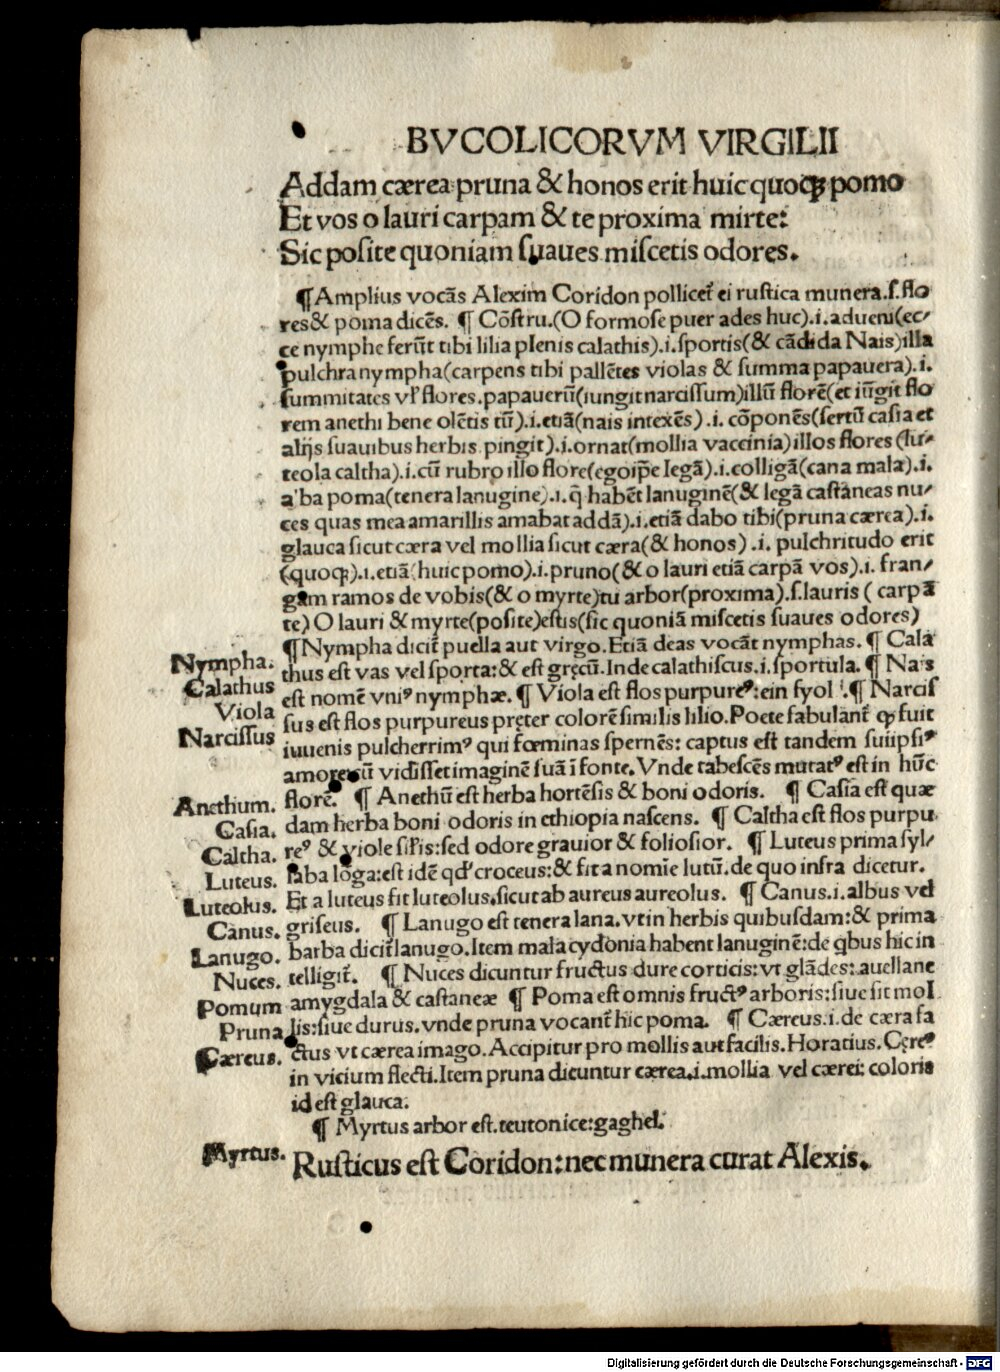 BVCOLICORVM VIRGILII
Addam cærea pruna & honos erit huic quoqꝫ pomo
Et vos o lauri carpam & te proxima mirte:
Sic posite quoniam suaues miscetis odores.
¶Amplius vocãs Alexim Coridon pollicet᷑ ei rustica munera.s.flo
res& poma dicẽs. ¶ Cõstru.(O formose puer ades huc).i.adueni(ec/
ce nymphe ferũt tibi lilia plenis calathis).i.sportis(& cãdida Nais)illa
pulchra nympha(carpens tibi pallẽtes violas & summa papauera).i.
summitates vl᷑ flores.papauerũ(iungit narcissum)illũ florẽ(et iũgit flo
rem anethi bene olẽtis tũ).i.etiã(nais intexẽs).i. cõponẽs(sertũ casia et
alijs suauibus herbis pingit).i.ornat(mollia vaccinia)illos flores (lu/
teola caltha).i.cũ rubro illo flore(ego ip̃e legã).i.colligã(cana mala).i.
alba poma(tenera lanugine).i.q̃ habẽt lanuginẽ(& legã castaneas nu/
ces quas mea amarillis amabat addã).i.etiã dabo tibi(pruna cærea).i.
glauca sicut cæra vel mollia sicut cæra(& honos).i. pulchritudo erit
(quoqꝫ).i.etiã(huic pomo).i.pruno(& o lauri etiã carpã vos).i. fran/
gam ramos de vobis(& o myrte)tu arbor(proxima).s.lauris ( carpã
te) O lauri & myrte(posite)estis(sic quoniã miscetis suaues odores)
¶Nympha dicit᷑ puella aut virgo.Etiã deas vocãt nymphas. ¶ Cala
Nympha.
thus est vas vel sporta:& est gręcũ.Inde calathiscus.i.sportula. ¶ Nais
Calathus
est nomẽ vniꝰ nymphæ. ¶ Viola est flos purpureꝰ:ein fyol .¶ Narcis
Viola
sus est flos purpureus pręter colorẽ similis lilio.Poete fabulant᷑ ꝙ fuit
Narcissus
iuuenis pulcherrimꝰ qui fœminas spernẽs: captus est tandem suiipsiꝰ
amore:cũ vidisset imaginẽ suã ĩ fonte.Vnde tabescẽs mutatꝰ est in hũc
Anethum.
florẽ. ¶ Anethũ est herba hortẽsis & boni odoris. ¶ Casia est quæ
Casia.
dam herba boni odoris in ethiopia nascens. ¶ Caltha est flos purpu
Caltha.
reꝰ & viole sil᷑is:sed odore grauior & foliosior. ¶ Luteus prima syl/
Luteus.
laba lõga:est idẽ qd' croceus:& fit a nomĩe lutũ.de quo infra dicetur.
Luteolus.
Et a luteus fit luteolus.sicut ab aureus aureolus. ¶ Canus.i.albus vel
Canus.
griseus. ¶ Lanugo est tenera lana.vt in herbis quibusdam:& prima
Lanugo.
barba dicit᷑ lanugo.Item mala cydonia habent lanuginẽ:de qbus hic in
Nuces.
telligit᷑. ¶ Nuces dicuntur fructus dure corticis:vt glãdes:auellane
Pomum
amygdala & castaneæ ¶ Poma est omnis fructꝰ arboris:siue sit mol
Pruna
lis:siue durus.vnde pruna vocant᷑ hic poma. ¶ Cæreus.i.de cæra fa
Cæreus.
ctus vt cærea imago.Accipitur pro mollis aut facilis.Horatius.Cęreꝰ
in vicium flecti.Item pruna dicuntur cærea.i.mollia vel cærei: coloris
id est glauca.
¶ Myrtus arbor est.teutonice:gaghel.
Myrtus.
Rusticus est Coridon:nec munera curat Alexis.
Digitalisierung gefördert durch die Deutsche Forschungsgemeinschaft - DFG